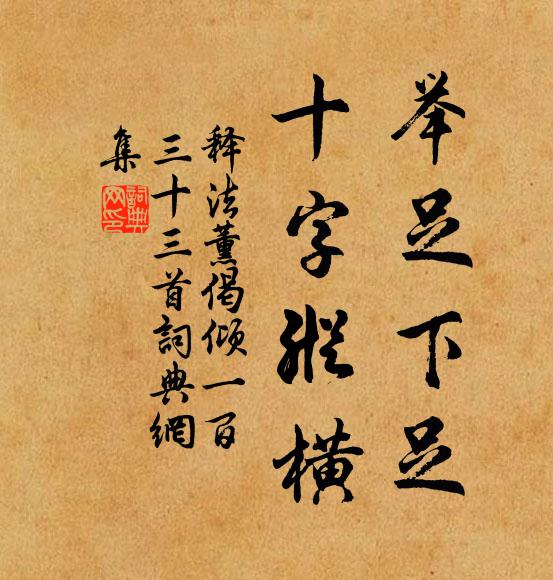 举足下足
十字縱横
释法薰偈倾一百
三十三首詞典網
集
詞典网印